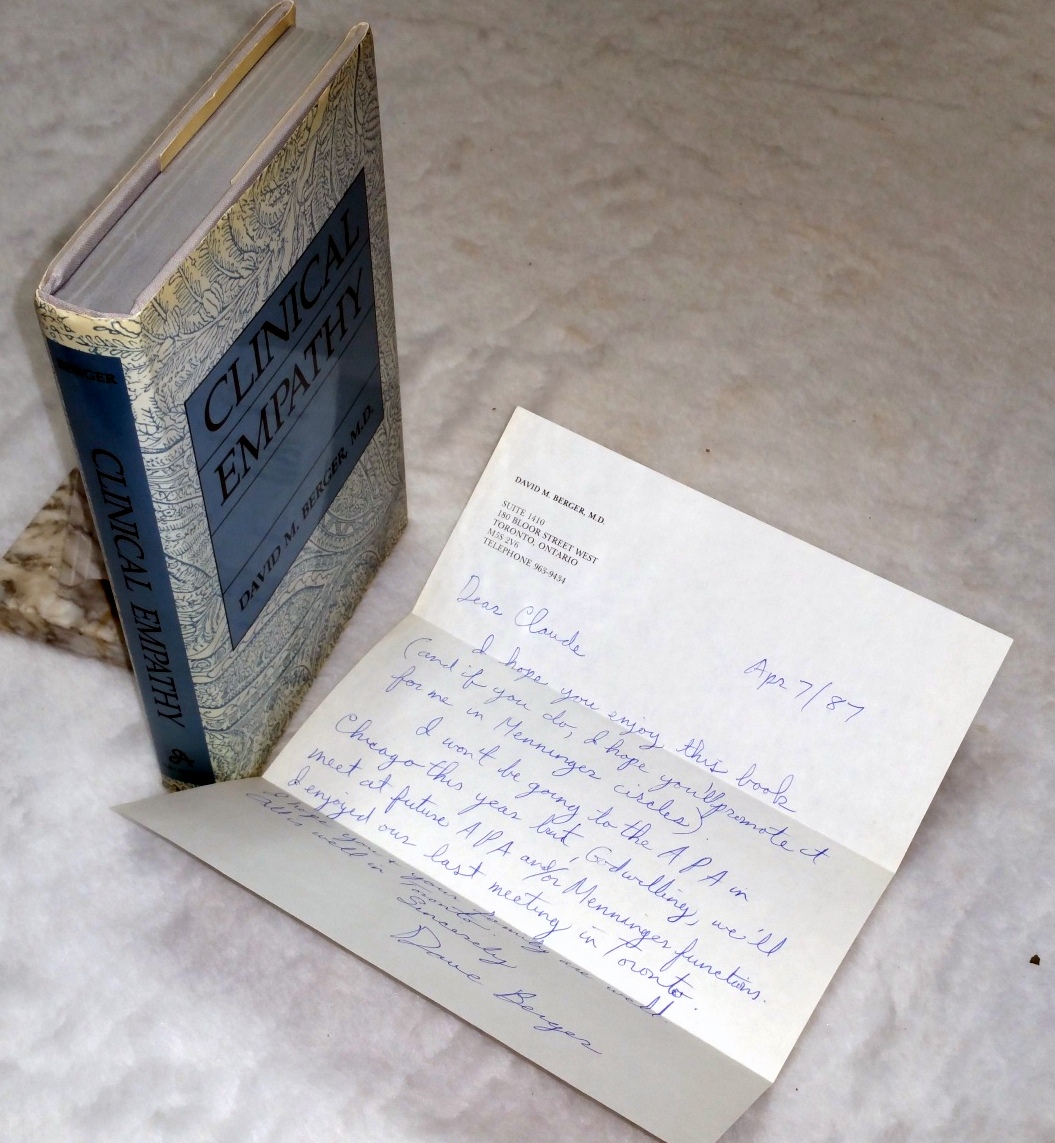 BERGER
CLINICAL EMPATHY
CLINICAL
EMPATHY
DAVID M. BERGER, M.D.
DAVID M. BERGER, M.D.
SUITE 1410
180 BLOOR STREET WEST
TORONTO, ONTARIO
M5S 2V6
TELEPHONE 963-9454
Dear Claude
Apr 7/87
I hope you enjoy this book
(and if you do, I hope you'll promote it
for me in Menninger circles)
I won't be going to the APA in
Chicago this year but, Godwilling, we'll
meet at future APA and/or Menninger functions.
I enjoyed our last meeting in Toronto.
I hope you & your family are well
All is well in Toronto.
Sincerely
Dave Berger